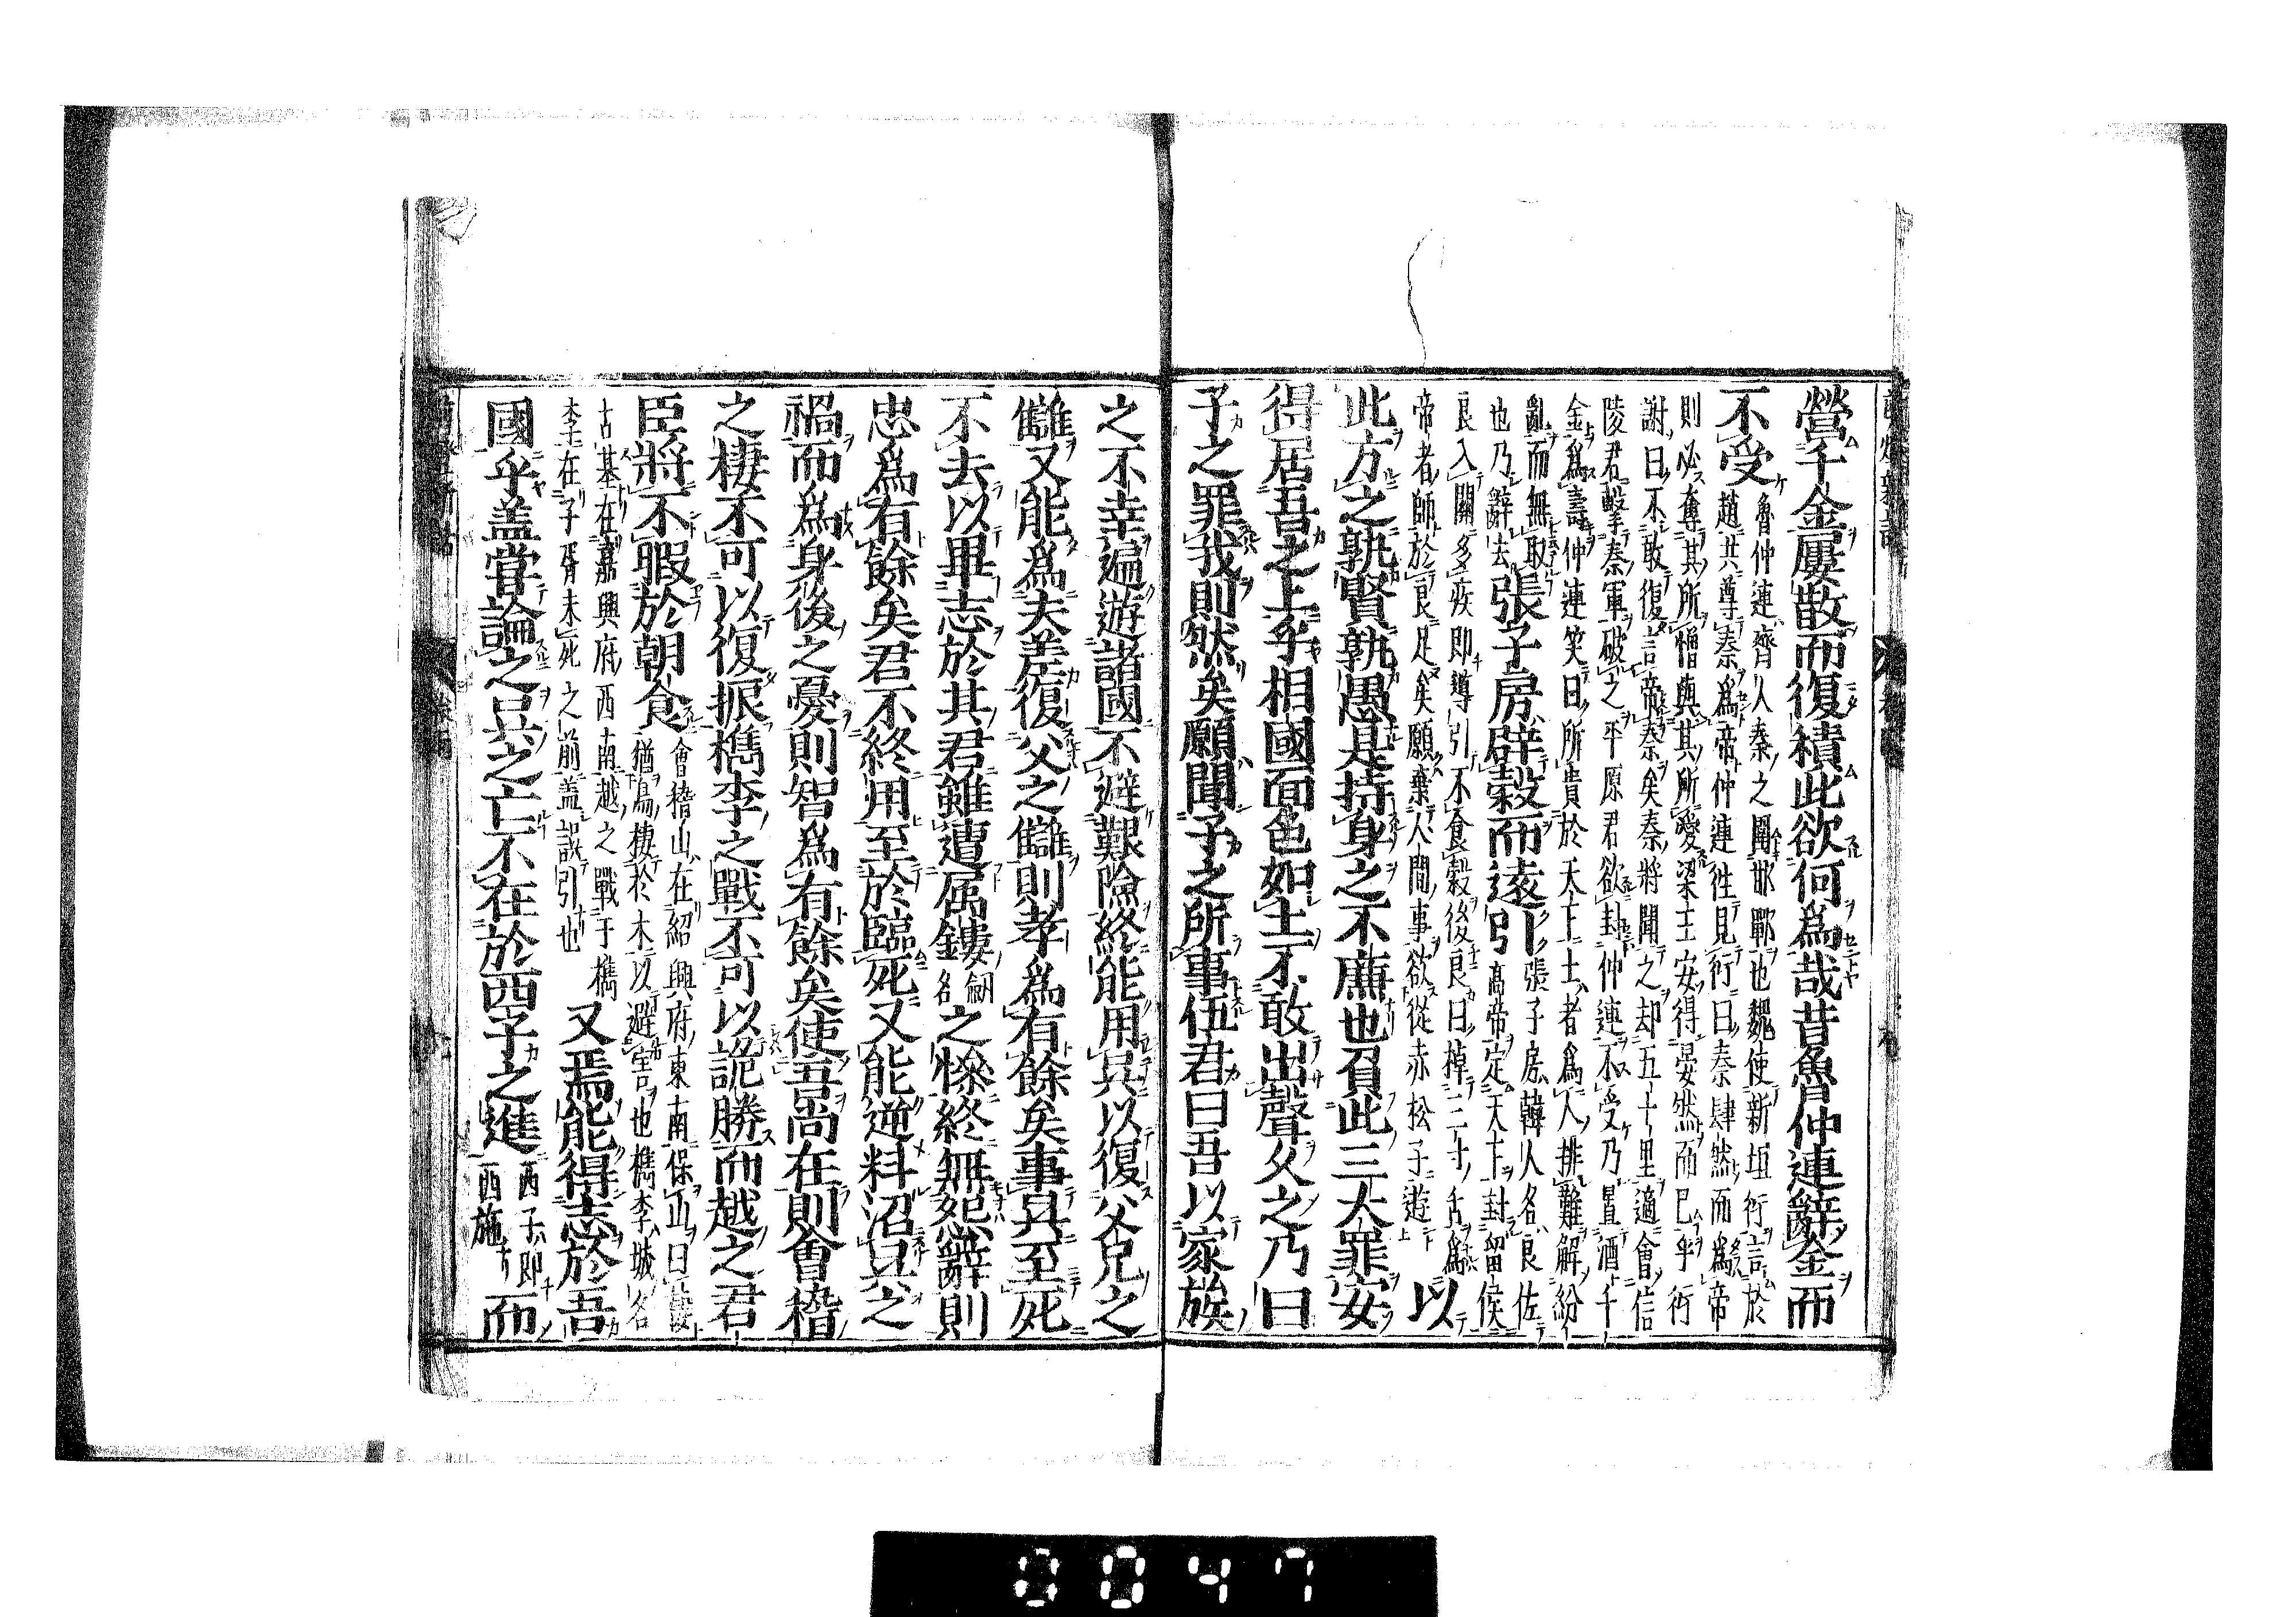 營千金屢散而復積此欲何爲哉昔魯仲連辭金而
不受
魯仲連齊人秦之圍邯鄲也魏使新垣衍言於
趙共尊秦爲帝仲連徃見衍曰秦肆然而爲帝
則必奪其所憎與其所愛梁王安得晏然而已乎衍
謝曰不敢復言帝秦矣秦將聞之却五十里適會信
陵君擊秦軍破之平原君欲封仲連不受乃置酒千
金爲壽仲連笑曰所貴於天下士者爲人排難解紛
亂而無取
也乃辭去
張子房辟穀而遠引
張子房韓人名良佐
高帝定天下封留侯
良入關多疾即導引不食穀後良曰掉三寸舌爲
帝者師於良足矣願棄人間事欲從赤松子遊
以
此方之孰賢孰愚是持身之不廉也負此三大罪安
得居吾之上乎相國面色如土不敢出聲久之乃曰
子之罪我則然矣願聞子之所事伍君曰吾以家族
之不幸遍遊諸國不避艱險終能用吳以復父兄之
讎又能爲夫差復父之讎則孝爲有餘矣事吳至死
不去以畢志於其君雖遭属鏤
劔
名
之慘終無怨辭則
忠爲有餘矣君不終用至於臨死又能逆料沼吳之
禍而爲身後之憂則智爲有餘矣使吾尚在則會稽
之棲不可以復振檇李之戰不可以詭勝而越之君
臣將不暇於朝食
會稽山在紹興府東南保山曰棲
猶鳥棲於木以避害也檇李城名
古基在嘉興府西南越之戰于檇
李在子胥未死之前盖誤引也
又焉能得志於吾
國乎盖嘗論之吳之亡不在於西子之進
西子即
西施
而
0047